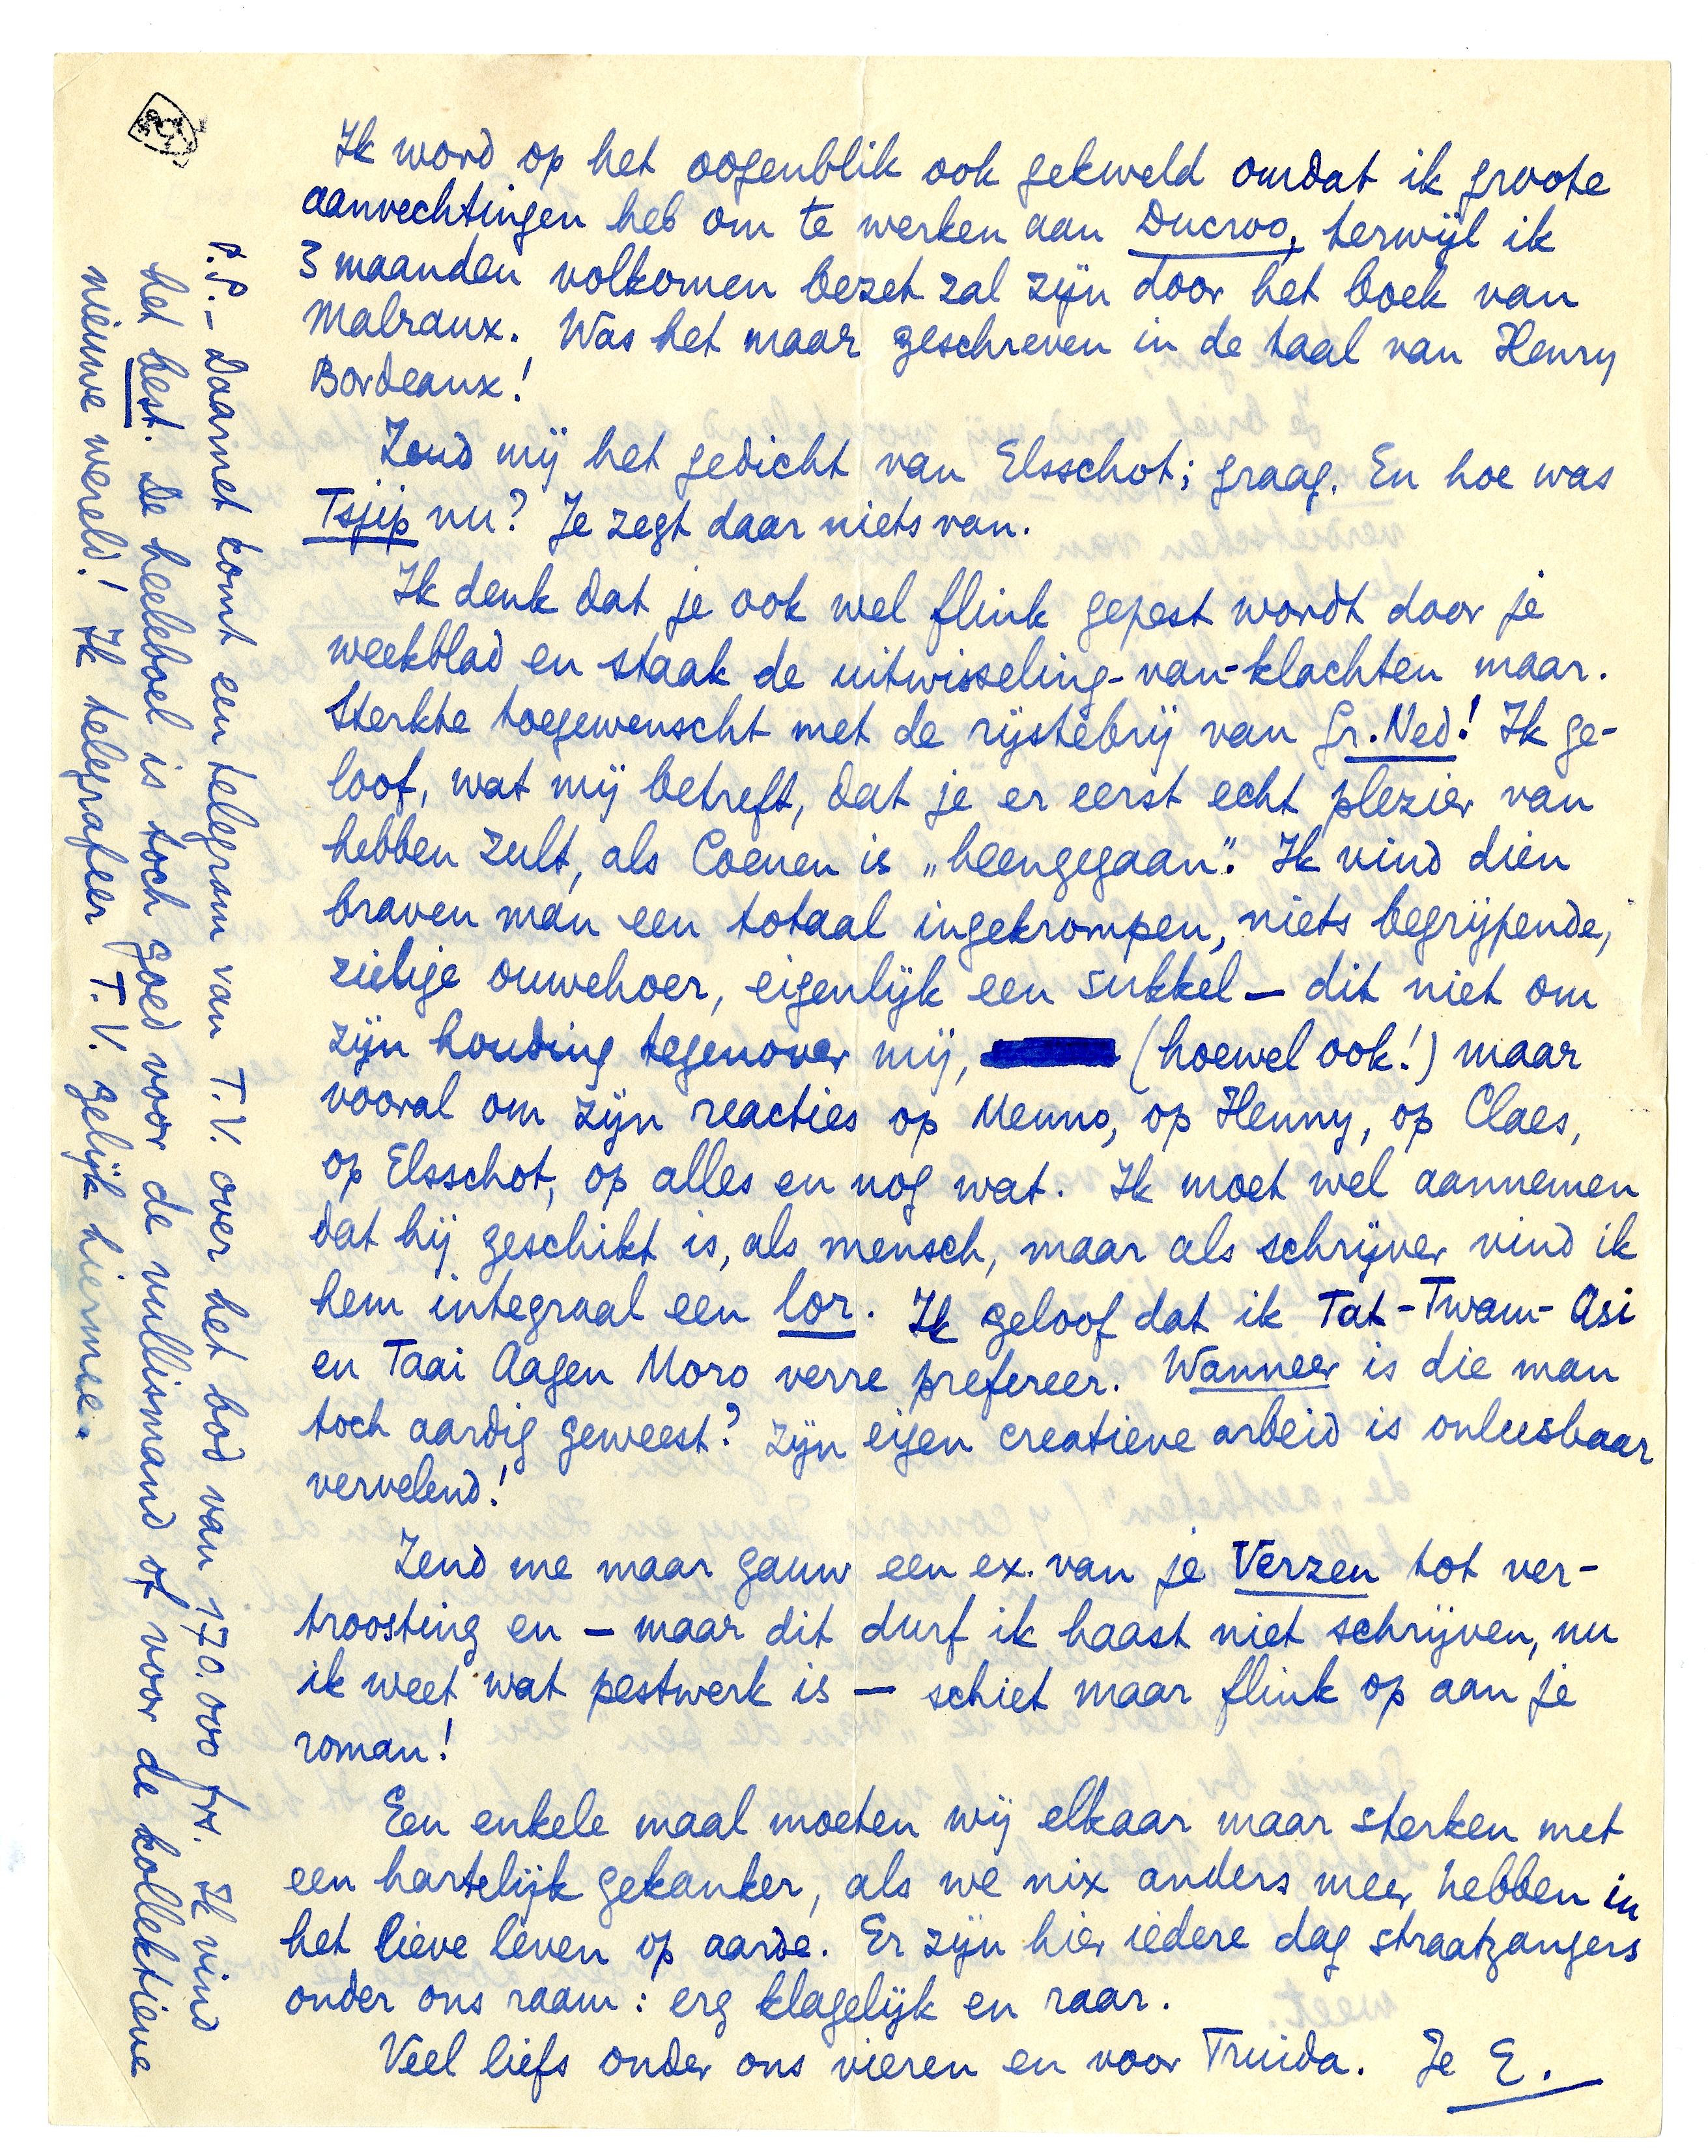 Ik word op het oogenblik ook gekweld omdat ik groote
aanvechtingen heb om te werken aan Ducroo, terwijl ik
3 maanden volkomen bezet zal zijn door het boek van
Malraux. Was het maar geschreven in de taal van Henry
Bordeaux!
Zend mij het gedicht van Elsschot; graag. En hoe was
Tsjip nu? Je zegt daar niets van.
Ik denk dat je ook wel flink gepest wordt door je
weekblad en staak de uitwisseling-van-klachten maar.
Sterkte toegewenscht met de rijstebrij van Gr. Ned! Ik ge-
loof, wat mij betreft, dat je er eerst echt plezier van
hebben zult, als Coenen is „heengegaan". Ik vind dien
braven man een totaal ingekrompen, niets begrijpende,
zielige ouwehoer, eigenlijk een sukkel — dit niet om
zijn houding tegenover mij, (hoewel ook!) maar
vooral om zijn reacties op Menno, op Henny, op Claes,
op Elsschot, op alles en nog wat. Ik moet wel aannemen
dat hij geschikt is, als mensch, maar als schrijver vind ik
hem integraal een lor. Ik geloof dat ik Tat-Twam-Asi
en Taai Aagen Moro verre prefereer. Wanneer is die man
toch aardig geweest? Zijn eigen creatieve arbeid is onleesbaar
vervelend!
Zend me maar gauw een ex. van je Verzen tot ver-
troosting en — maar dit durf ik haast niet schrijven, nu
ik weet wat pestwerk is — schiet maar flink op aan je
roman!
Een enkele maal moeten wij elkaar maar sterken met
een hartelijk gekanker, als we nix anders meer hebben in
het lieve leven op aarde. Er zijn hier iedere dag straatzangers
onder ons raam: erg klagelijk en raar.
Veel liefs onder ons vieren en voor Truida. Je E.
P.P. — Daarnet komt een telegram van T.V. over het bod van 170.000 frs. Ik vind
het best. De heeleboel is toch goed voor de vullismand of voor de kollektieve
nieuwe wereld! Ik telegrafeer T.V. gelijk hiermee.